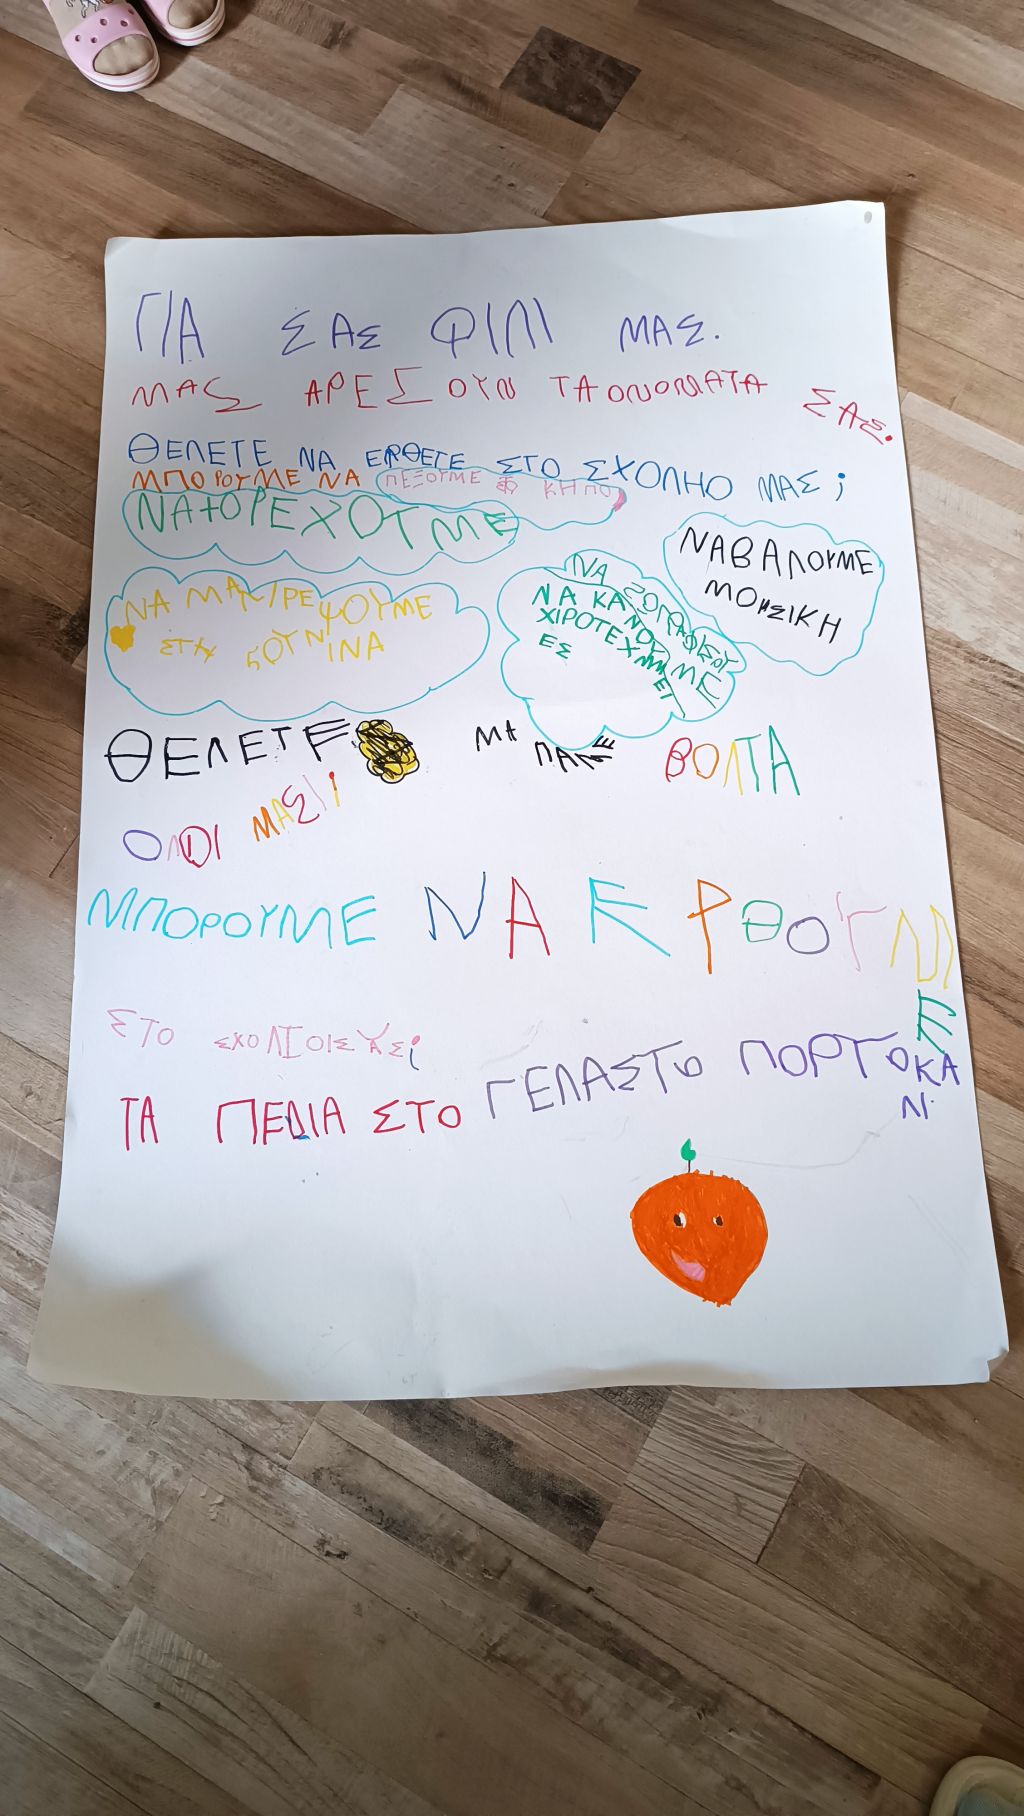 ΓΙΑ ΣΑΣ ΦΙΛΙ ΜΑΣ.
ΜΑΣ ΑΡΕΣΟΥΝ ΤΑ ΟΝΟΜΑΤΑ ΣΑΣ.
ΘΕΛΕΤΕ ΝΑ ΕΡΘΕΤΕ ΣΤΟ ΣΧΟΛΗΟ ΜΑΣ;
ΜΠΟΡΟΥΜΕ ΝΑ ΠΕΞΟΥΜΕ ΚΗΠΟ
ΝΑ ΧΟΡΕΧΟΥΜΕ
ΝΑ ΒΑΛΟΥΜΕ
ΜΟΥΣΙΚΗ
ΝΑ ΜΑΓΙΡΕΨΟΥΜΕ
ΣΤΗΝ ΚΟΥΝΙΝΑ
ΝΑ ΖΟΓΡΑΦΙΣΟΥΜΕ
ΝΑ ΚΑΝΟΥΜΕ
ΧΙΡΟΤΕΧΝΙΕΣ
ΘΕΛΕΤΕ ΝΑ ΠΑΜΕ ΒΟΛΤΑ
ΟΛΟΙ ΜΑΣΙ;
ΜΠΟΡΟΥΜΕ ΝΑ ΕΡΘΟΥΜΕ
ΣΤΟ ΣΧΟΛΙΟ ΣΑΣ;
ΤΑ ΠΕΔΙΑ ΣΤΟ ΓΕΛΑΣΤΟ ΠΟΡΤΟΚΑΛΙ.